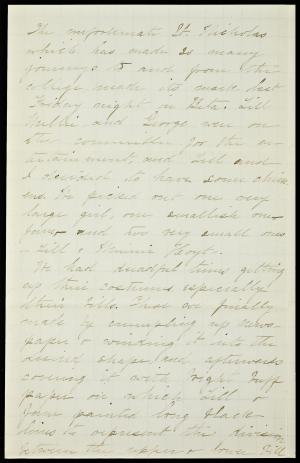 The unfortunate St. Nicholas
which has made so many
journeys to and from the
college made its mark last
Friday night in Zeta. Lill
Nellie and George were on
the committee for the en-
tertainment, and Lill and
I decided to have some chick
ens. We picked out one very
large girl, one smallish one
Jone and two very small ones
- Lill & Minnie Hoyt.
We had dreadful times getting
up their costumes especially
their bills. These we finally
made by crumpling up news-
paper & winding it into the
desired shape, and afterwards
covering it with bright buff
paper on which Lill &
Jone painted long black
lines to represent the division
between the upper & lower bill